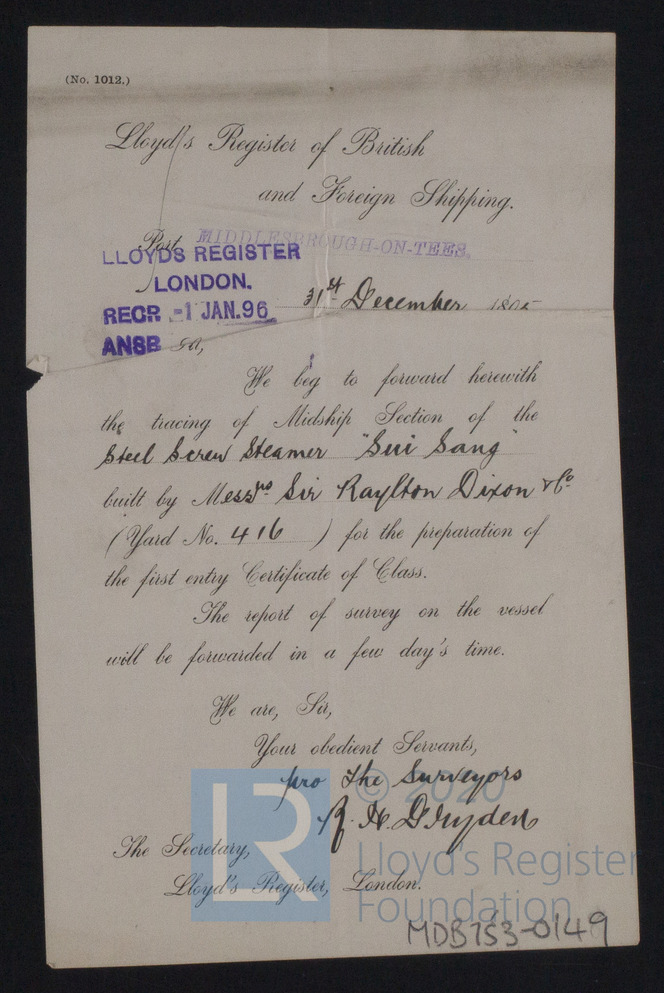 (No. 1012.)
Lloyd's Register of British
and Foreign Shipping.
Port MIDDLESBROUGH-ON-TEES.
LLOYDS REGISTER
LONDON.
31st December 1895
RECR -1 JAN.96
ANSB Sir,
We beg to forward herewith
the tracing of Midship Section of the
Steel Screw Steamer "Sui Sang"
built by Messrs Sir Raylton Dixon & Co
(Yard No. 416 ) for the preparation of
the first entry Certificate of Class.
The report of survey on the vessel
will be forwarded in a few day's time.
We are, Sir,
Your obedient Servants,
pro The Surveyors
R. H.
The Secretary,
Lloyd's Register, London.
LR
© 2020
Lloyd's Register
Foundation
MDB753-0149